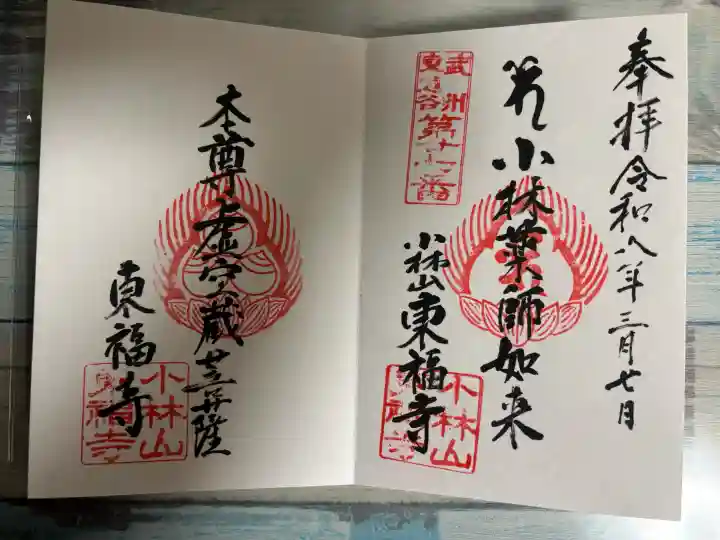 奉拝令和八年三月七日
小林薬師如来
武州
東
谷
第十
番
小林山東福寺
小林山
東福寺
本尊虚空蔵
東福寺
小林山
東福寺